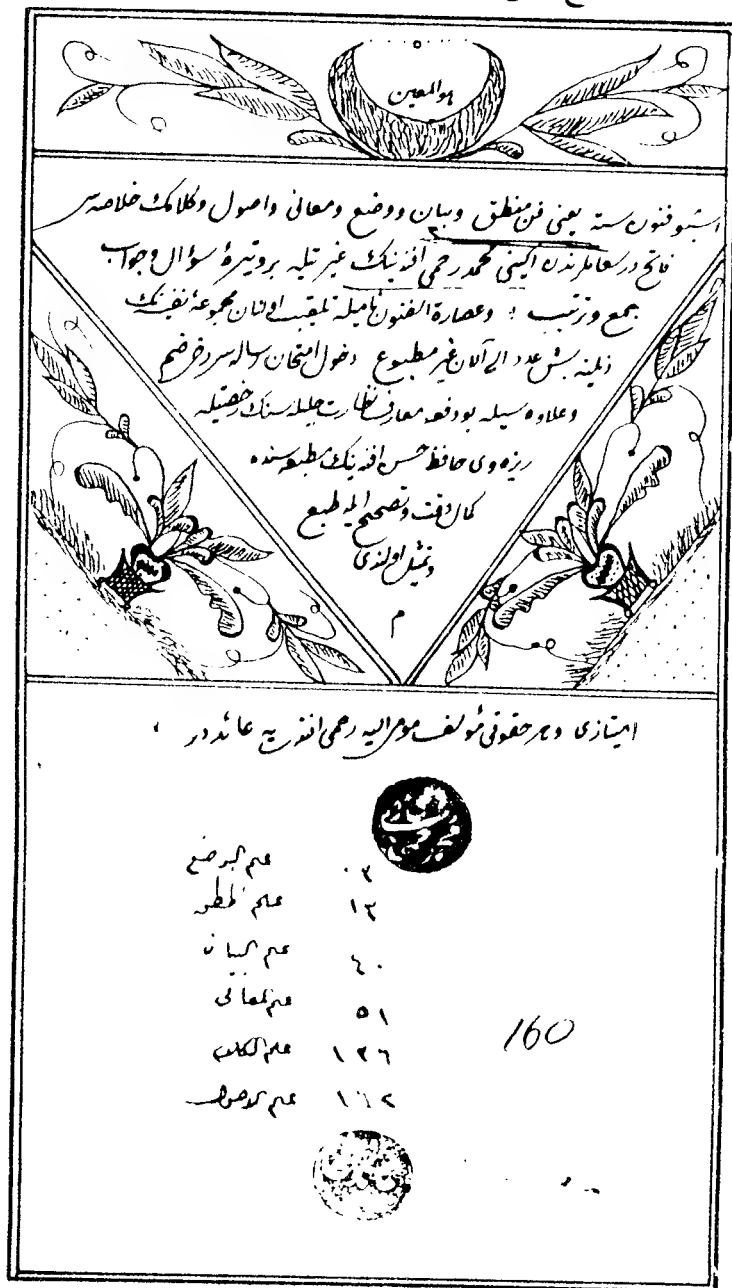 هو المعين
اشبو فنون سته يعنى فن منطق وبيان ووضع ومعانى واصول وكلامك خلاصه سى
فاتح درسعاملرندن اكينى محمد رحمى افندينك غيرتيله بر وتيرۀ سؤال وجواب
جمع وترتيب ؛ وعصارة الفنون ناميله تلقيب اولنان مجموعۀ نفيسه نك
ذيلينه بش عدد الى الآن غير مطبوع دخول امتحان رساله سى درخى ضم
وعلاوه سيله بو دفعه معارف نظارت جليله سنك رخصتيله
ريزه وى حافظ حسن افندينك مطبعه سنده
كمال دقت وتصحيح ايله طبع
وتمثيل اولندى
م
امتيازى وهر حقوقى مؤلف مومى اليه رحمى افندى يه عائددر
علم الوضع ٠٢
علم المنطق ١٣
علم البيان ٤٠
علم المعانى ٥١
علم الكلام ١٢٦
علم الاصول
160